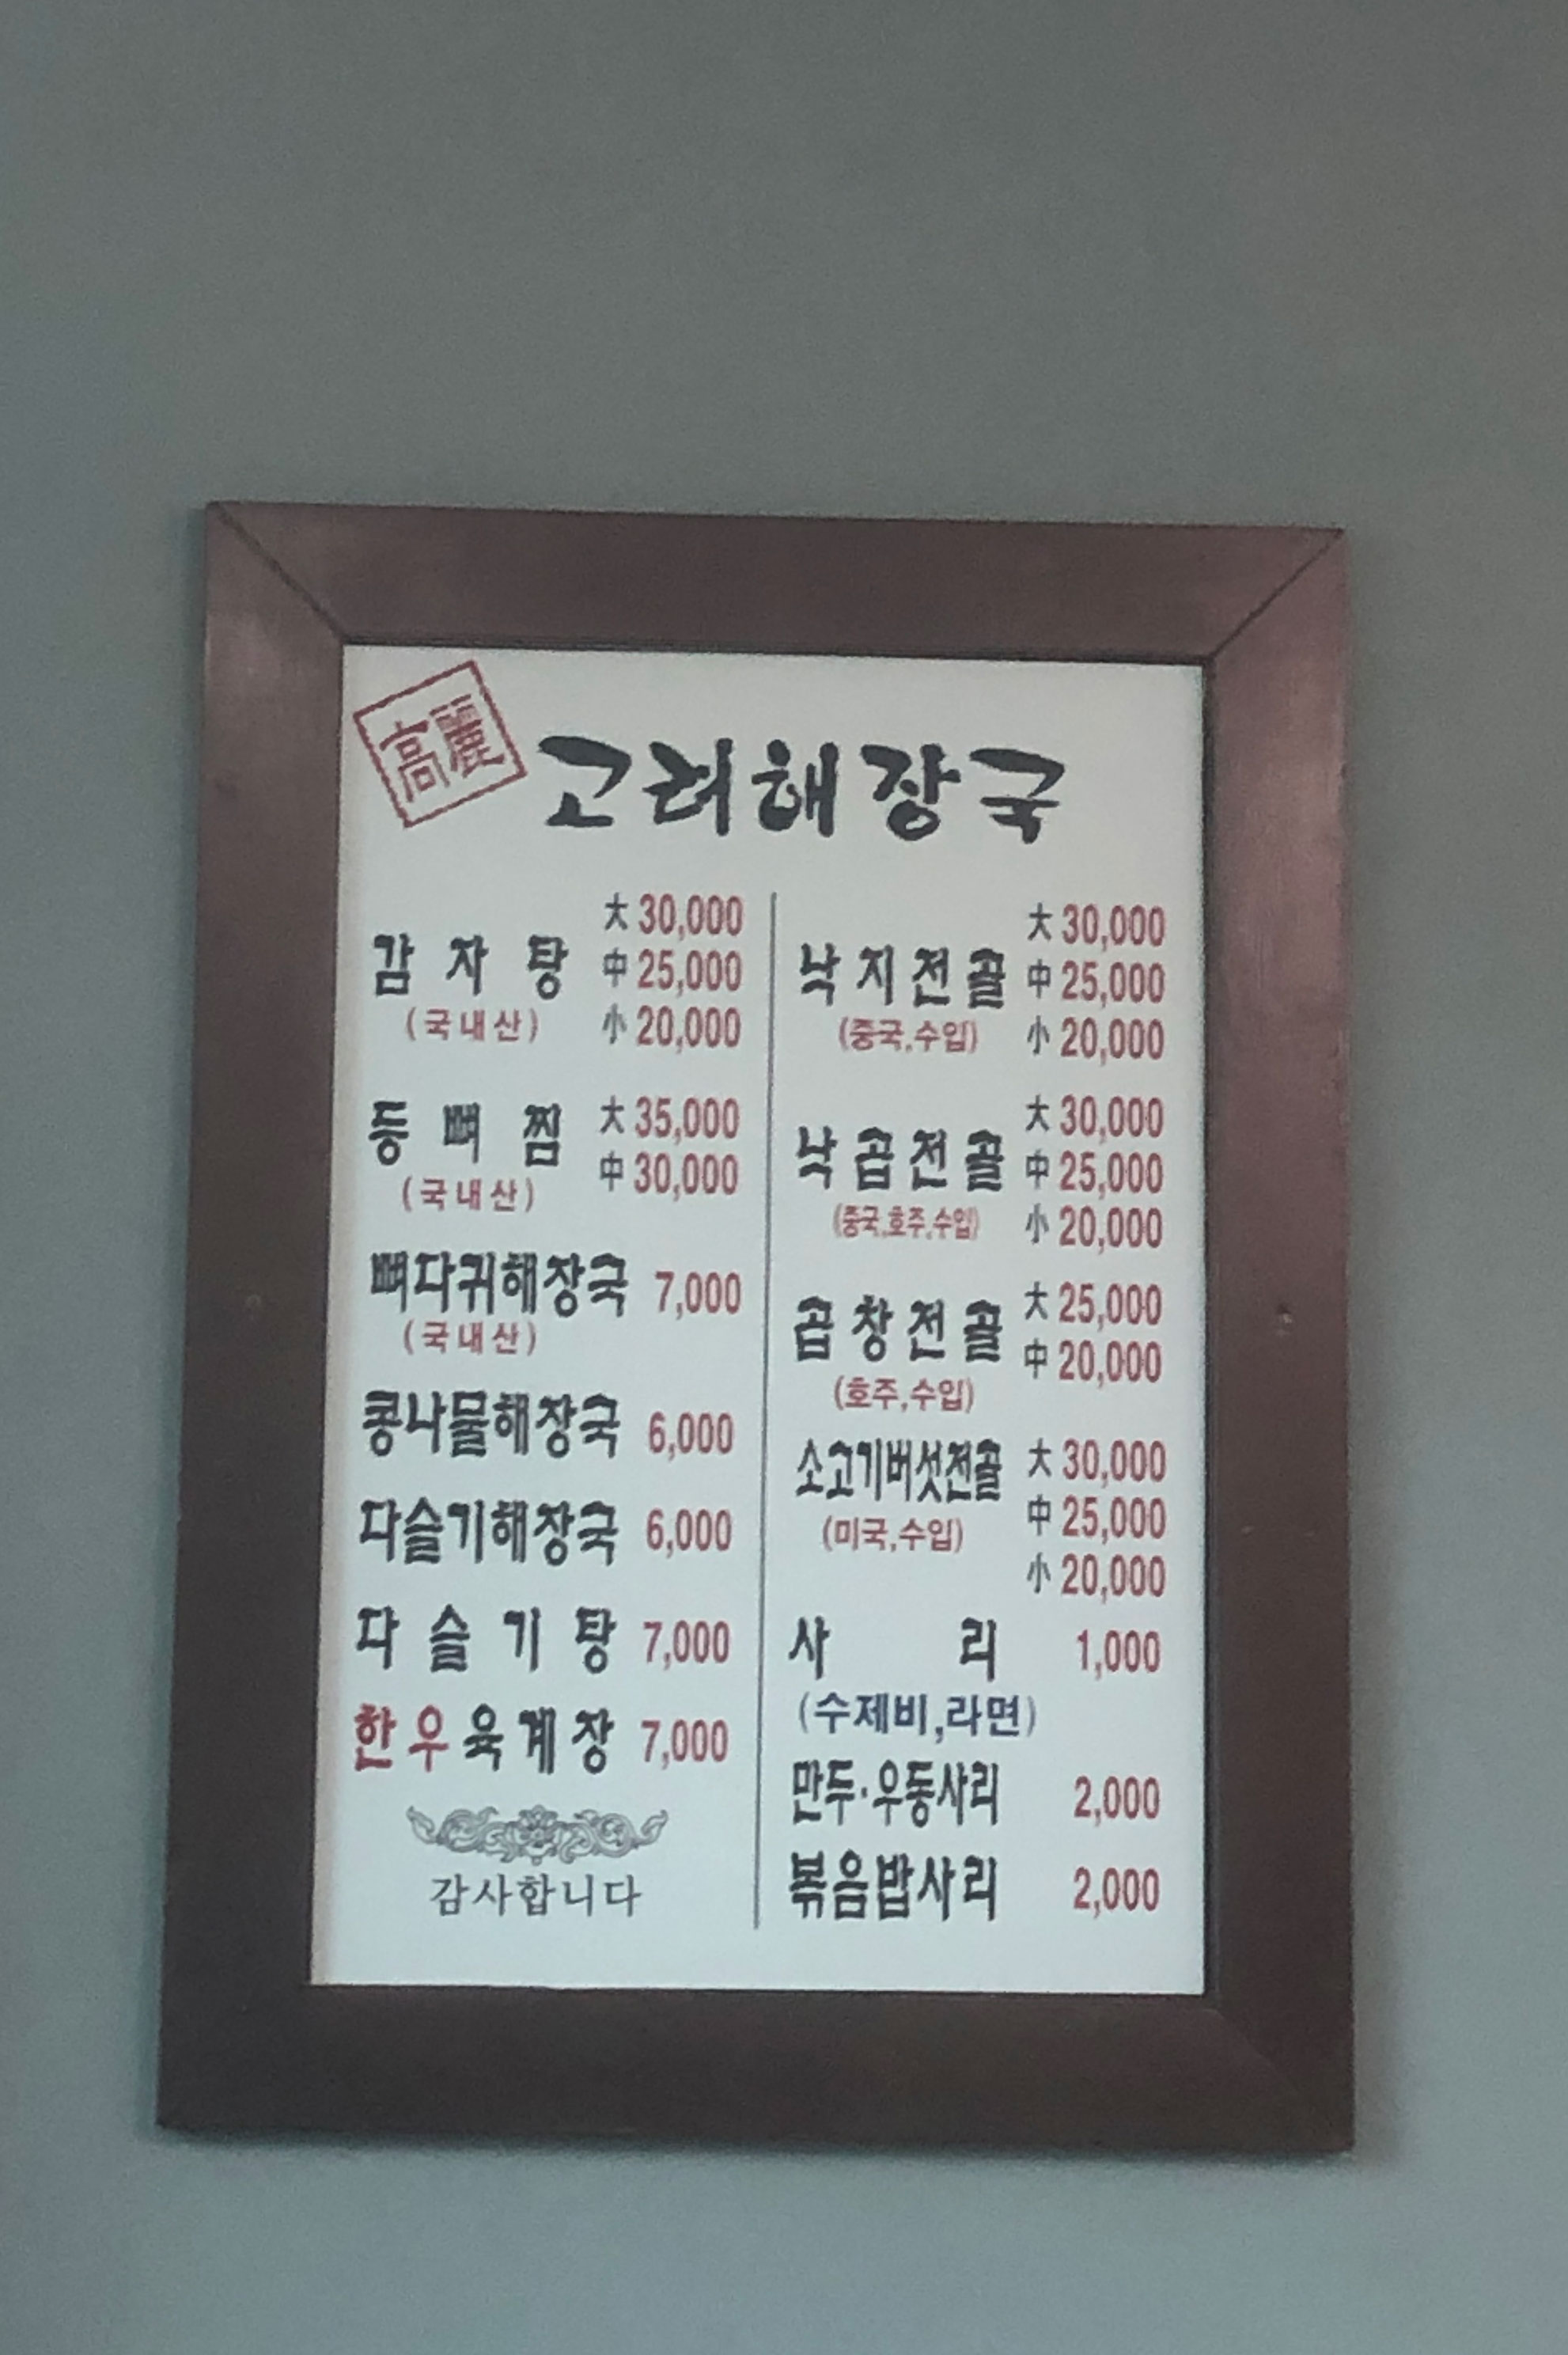 高麗
고려해장국
감자탕 大 30,000
中 25,000
(국내산) 小 20,000
등뼈찜 大 35,000
(국내산) 中 30,000
뼈다귀해장국 7,000
(국내산)
콩나물해장국 6,000
다슬기해장국 6,000
다슬기탕 7,000
한우육계장 7,000
감사합니다
낙지전골 大 30,000
中 25,000
(중국,수입) 小 20,000
낙곱전골 大 30,000
中 25,000
(중국,호주,수입) 小 20,000
곱창전골 大 25,000
中 20,000
(호주,수입)
소고기버섯전골 大 30,000
(미국,수입) 中 25,000
小 20,000
사리 1,000
(수제비,라면)
만두·우동사리 2,000
볶음밥사리 2,000